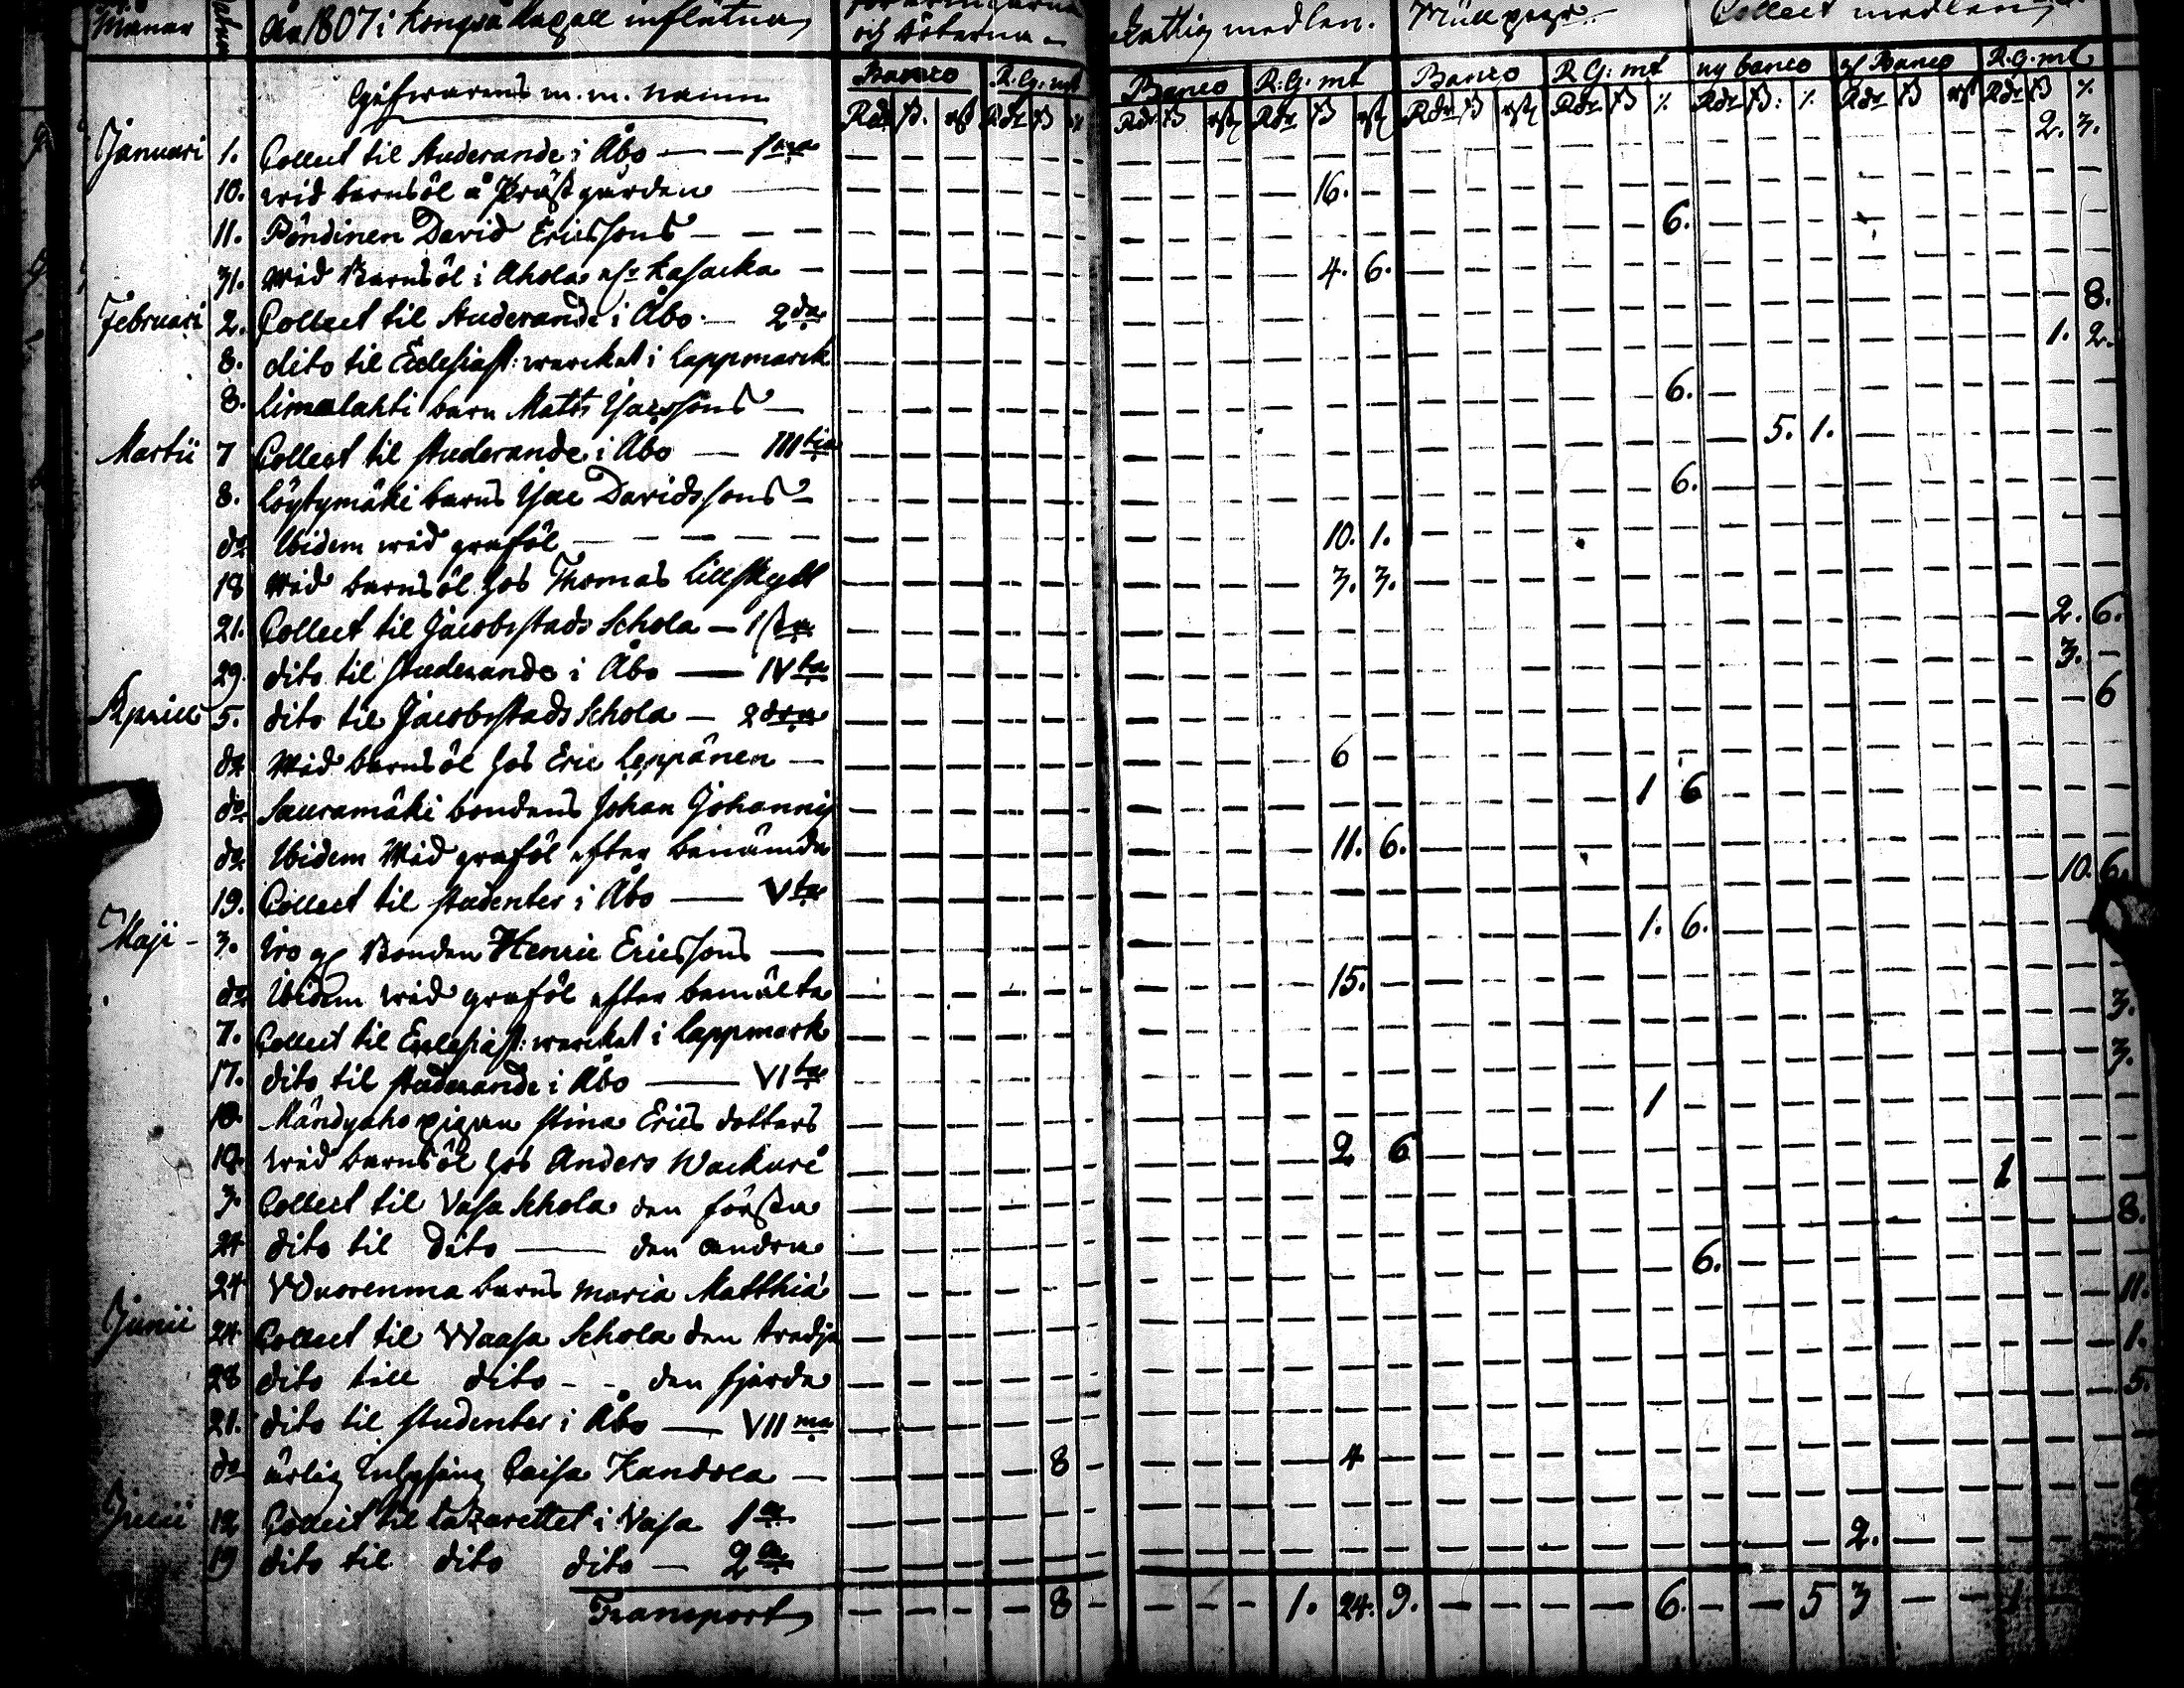 Månar Datum År 1807 i Kongså Kapell influtna och Årterna - Fattig medlen. Müll pengr. Collect medlen
Banco R:G: mt Banco R:G: mt Banco R G: mt ny banco gl Banco R.G. mt
Gifwarens m. m. namn
Januari 1. Collect til Studerande i Åbo — — 1ma 2. 3.
10. wid barnsöl å Prästgården — 16. -
11. Pöndinen David Ericssons — — — 6.
31. Wid Barnsöl i Ahola Kasacka — 4. 6.
Februari 2. Collect til Studerande i Åbo — 2da 8.
8. dito til Ecclesiast: wercket i Lappmarck 1. 2.
8. Limalahti barn Matts — 6.
Martii 7 Collect til studerande i Åbo — IIItia 5. 1.
8. Löytymäki barns Isac Davidssons — 6.
do Ibidem wid graföl — — — — — 10. 1.
18 Wid barnsöl hos Thomas Lillskytt 3. 3.
21. Collect til Jacobstads Schola — 1sta 2. 6.
29. dito til studerande i Åbo — IVta 3. —
Aprill 5. dito til Jacobstads Schola — 2dra 6
do Wid barnsöl hos Eric Leppänen — 6 -
do Sauramäki bondens Johan Johannis 1 6
do Ibidem Wid graföl efter benämda 11. 6.
19. Collect til studenter i Åbo — Vta 10. 6.
Maji - 3. Iro gl Bonden Henric Ericssons — 1. 6.
do Ibidem wid graföl efter bemälte 15. -
7. Collect til Ecclesiast: wercket i Lappmark 3.
17. dito til studerande i Åbo — VIta 3.
18. Mändyaho pigan Stina Erics dotters 1
18. wid barnsöl hos Anders Wackuri 2 6
3. Collect til Vasa Schola den första 1
24 dito til Dito — den andra 8.
24 Wuorenma barns Maria Matthiæ 6.
Junii 24 Collect til Waasa Schola den tredje 11.
28 dito till dito - - den fjerde 1.
21. dito til studenter i Åbo — VIIma 5.
do ärlig Inhysing Caisa Kandola — 8 - 4
Julii 12 Collect til Lazarettet i Vasa 1a
19 dito til dito dito — 2a 2.
Transport — — — — 8 - — — — 1. 24. 9. — — — — — 6. — — 5 3 — — 1